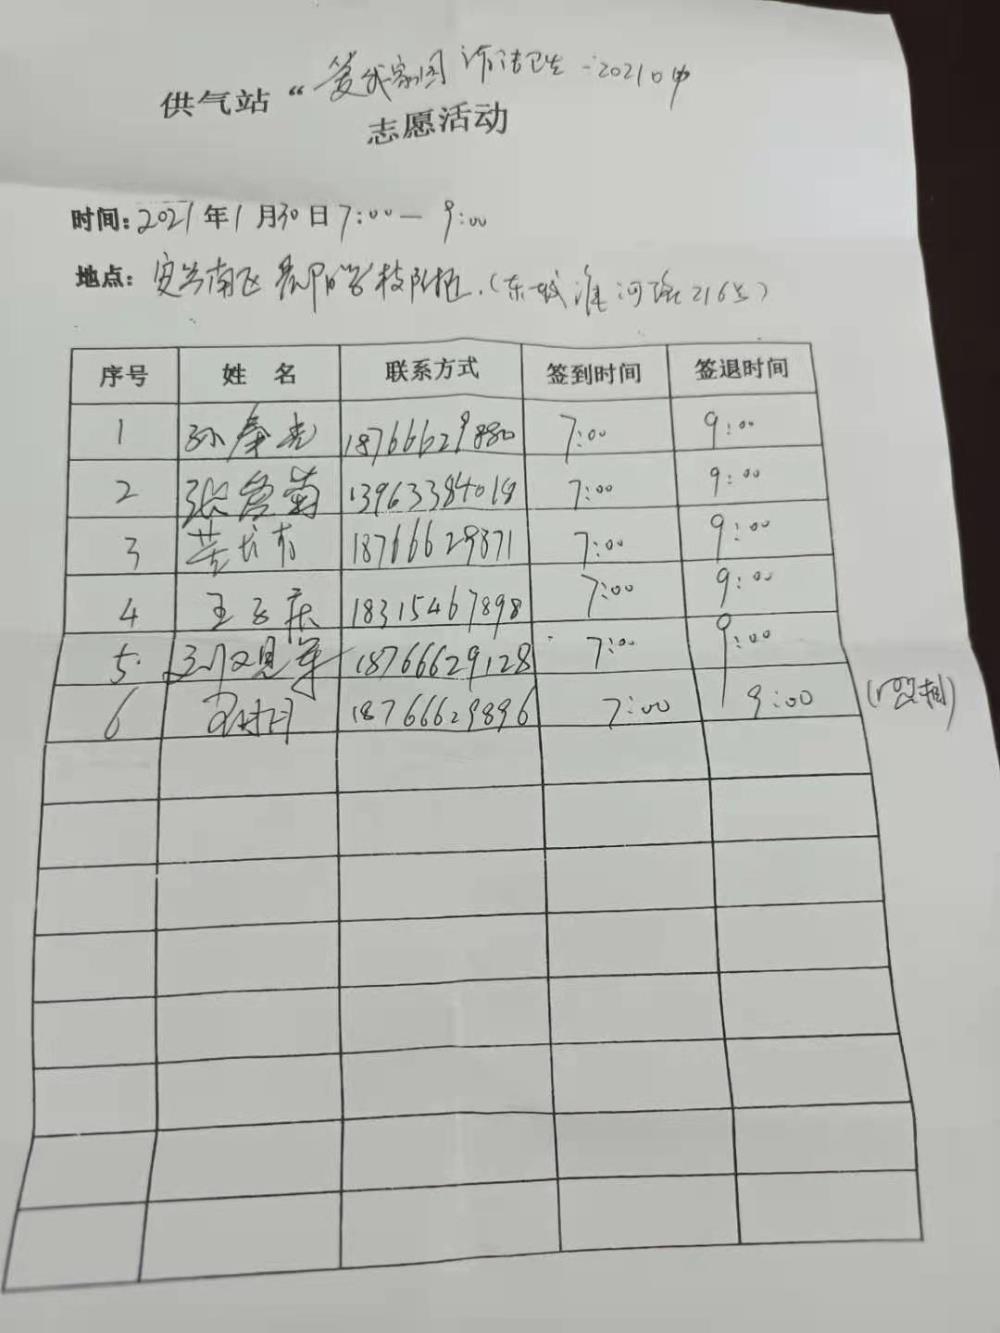 供气站 “爱我家园 清洁卫生 -2021
志愿活动
时间: 2021年1月30日 7:00— 9:00
地点: (东城淮河路216号)
序号 姓 名 联系方式 签到时间 签退时间
1 孙秦光 18766629880 7:00 9:00
2 张 菊 13963384018 7:00 9:00
3 18766629871 7:00 9:00
4 王 庆 18315467898 7:00 9:00
5 刘 军 18766629128 7:00 9:00
6 18766629896 7:00 9:00 (照相)